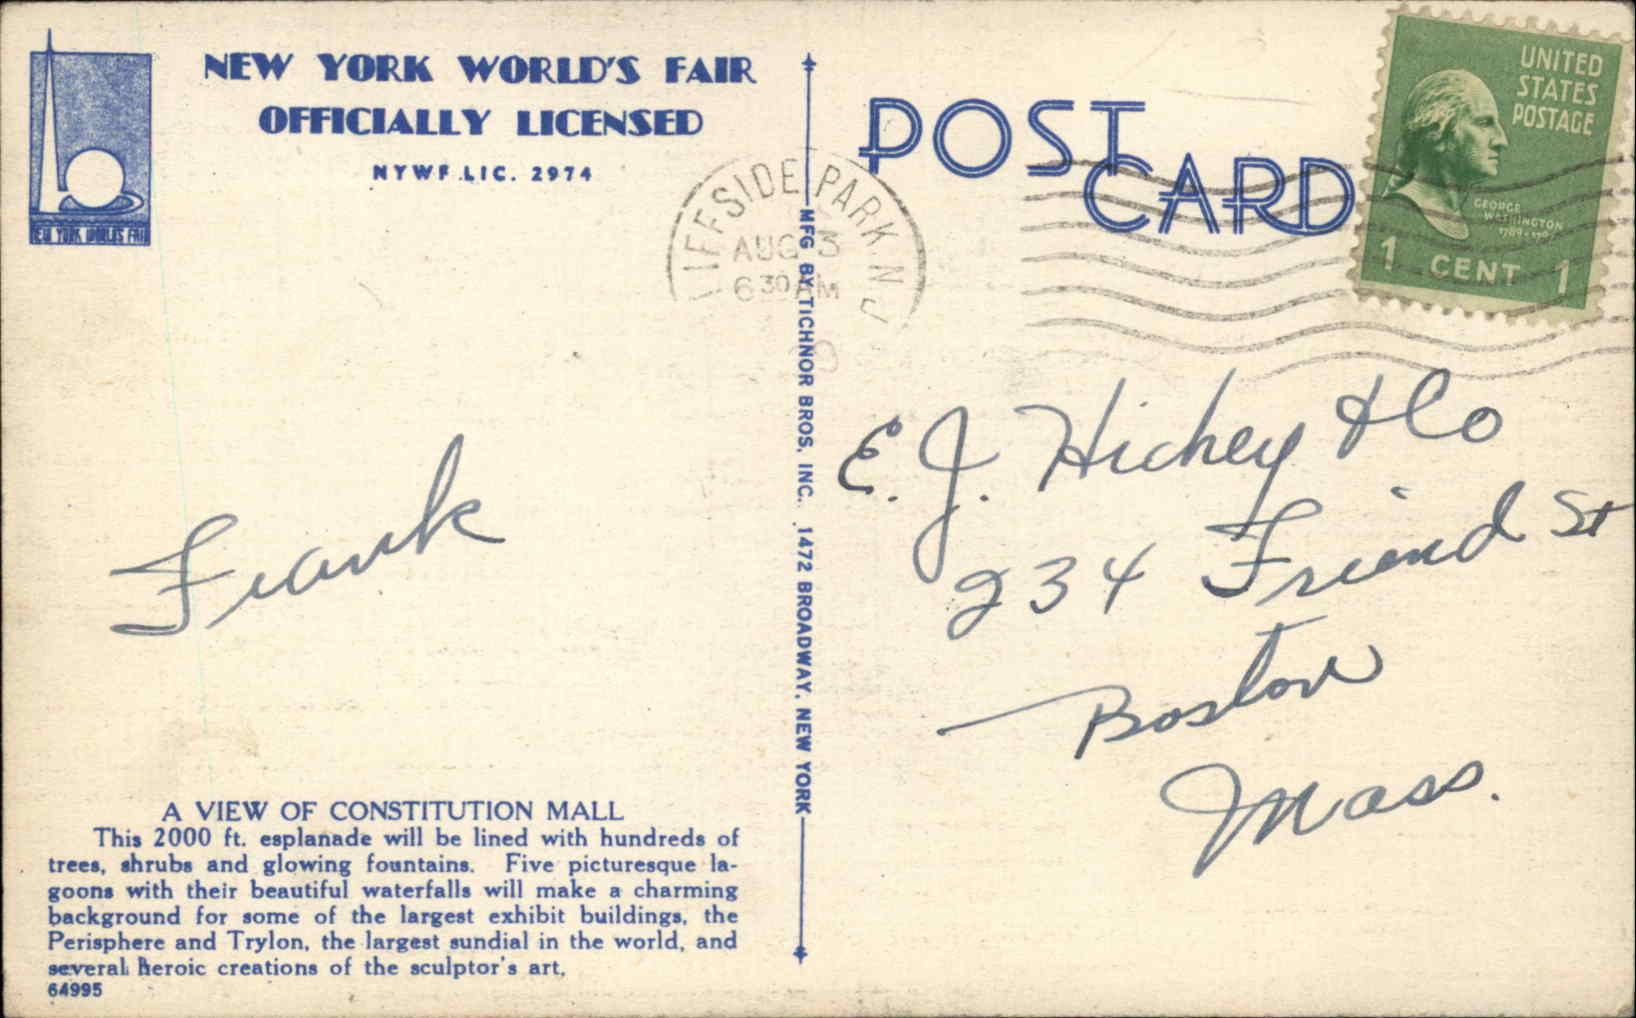 NEW YORK WORLD'S FAIR
OFFICIALLY LICENSED
NYWF. LIC. 2974
NEW YORK WORLD'S FAIR
POST
CARD
UNITED
STATES
POSTAGE
GEORGE
WASHINGTON
1789 • 1797
1 CENT 1
IFFSIDE PARK N J
AUG 3
6 30 AM
MFG BY TICHNOR BROS. INC. 1472 BROADWAY. NEW YORK
E. J. Hickey & Co
234 Friend St
Boston
Mass.
Frank
A VIEW OF CONSTITUTION MALL
This 2000 ft. esplanade will be lined with hundreds of
trees, shrubs and glowing fountains. Five picturesque la-
goons with their beautiful waterfalls will make a charming
background for some of the largest exhibit buildings, the
Perisphere and Trylon, the largest sundial in the world, and
several heroic creations of the sculptor's art.
64995